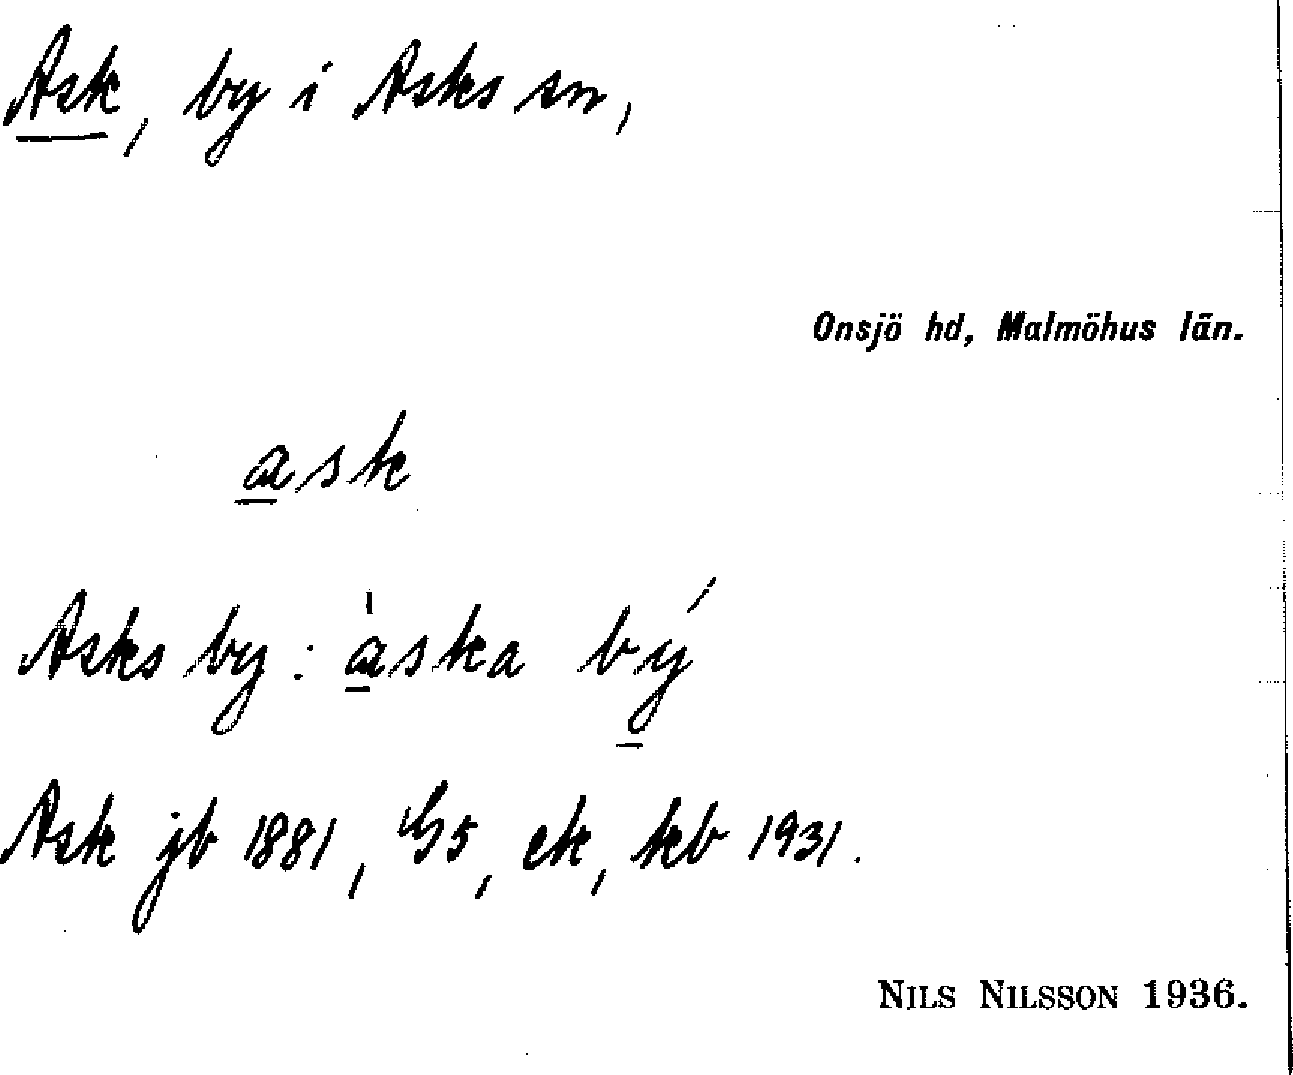 Ask, by i Asks sn,
Onsjö hd, Malmöhus län.
ask
Asks by: àska bý
Ask jb 1881, G5, ek, kb 1931.
NILS NILSSON 1936.